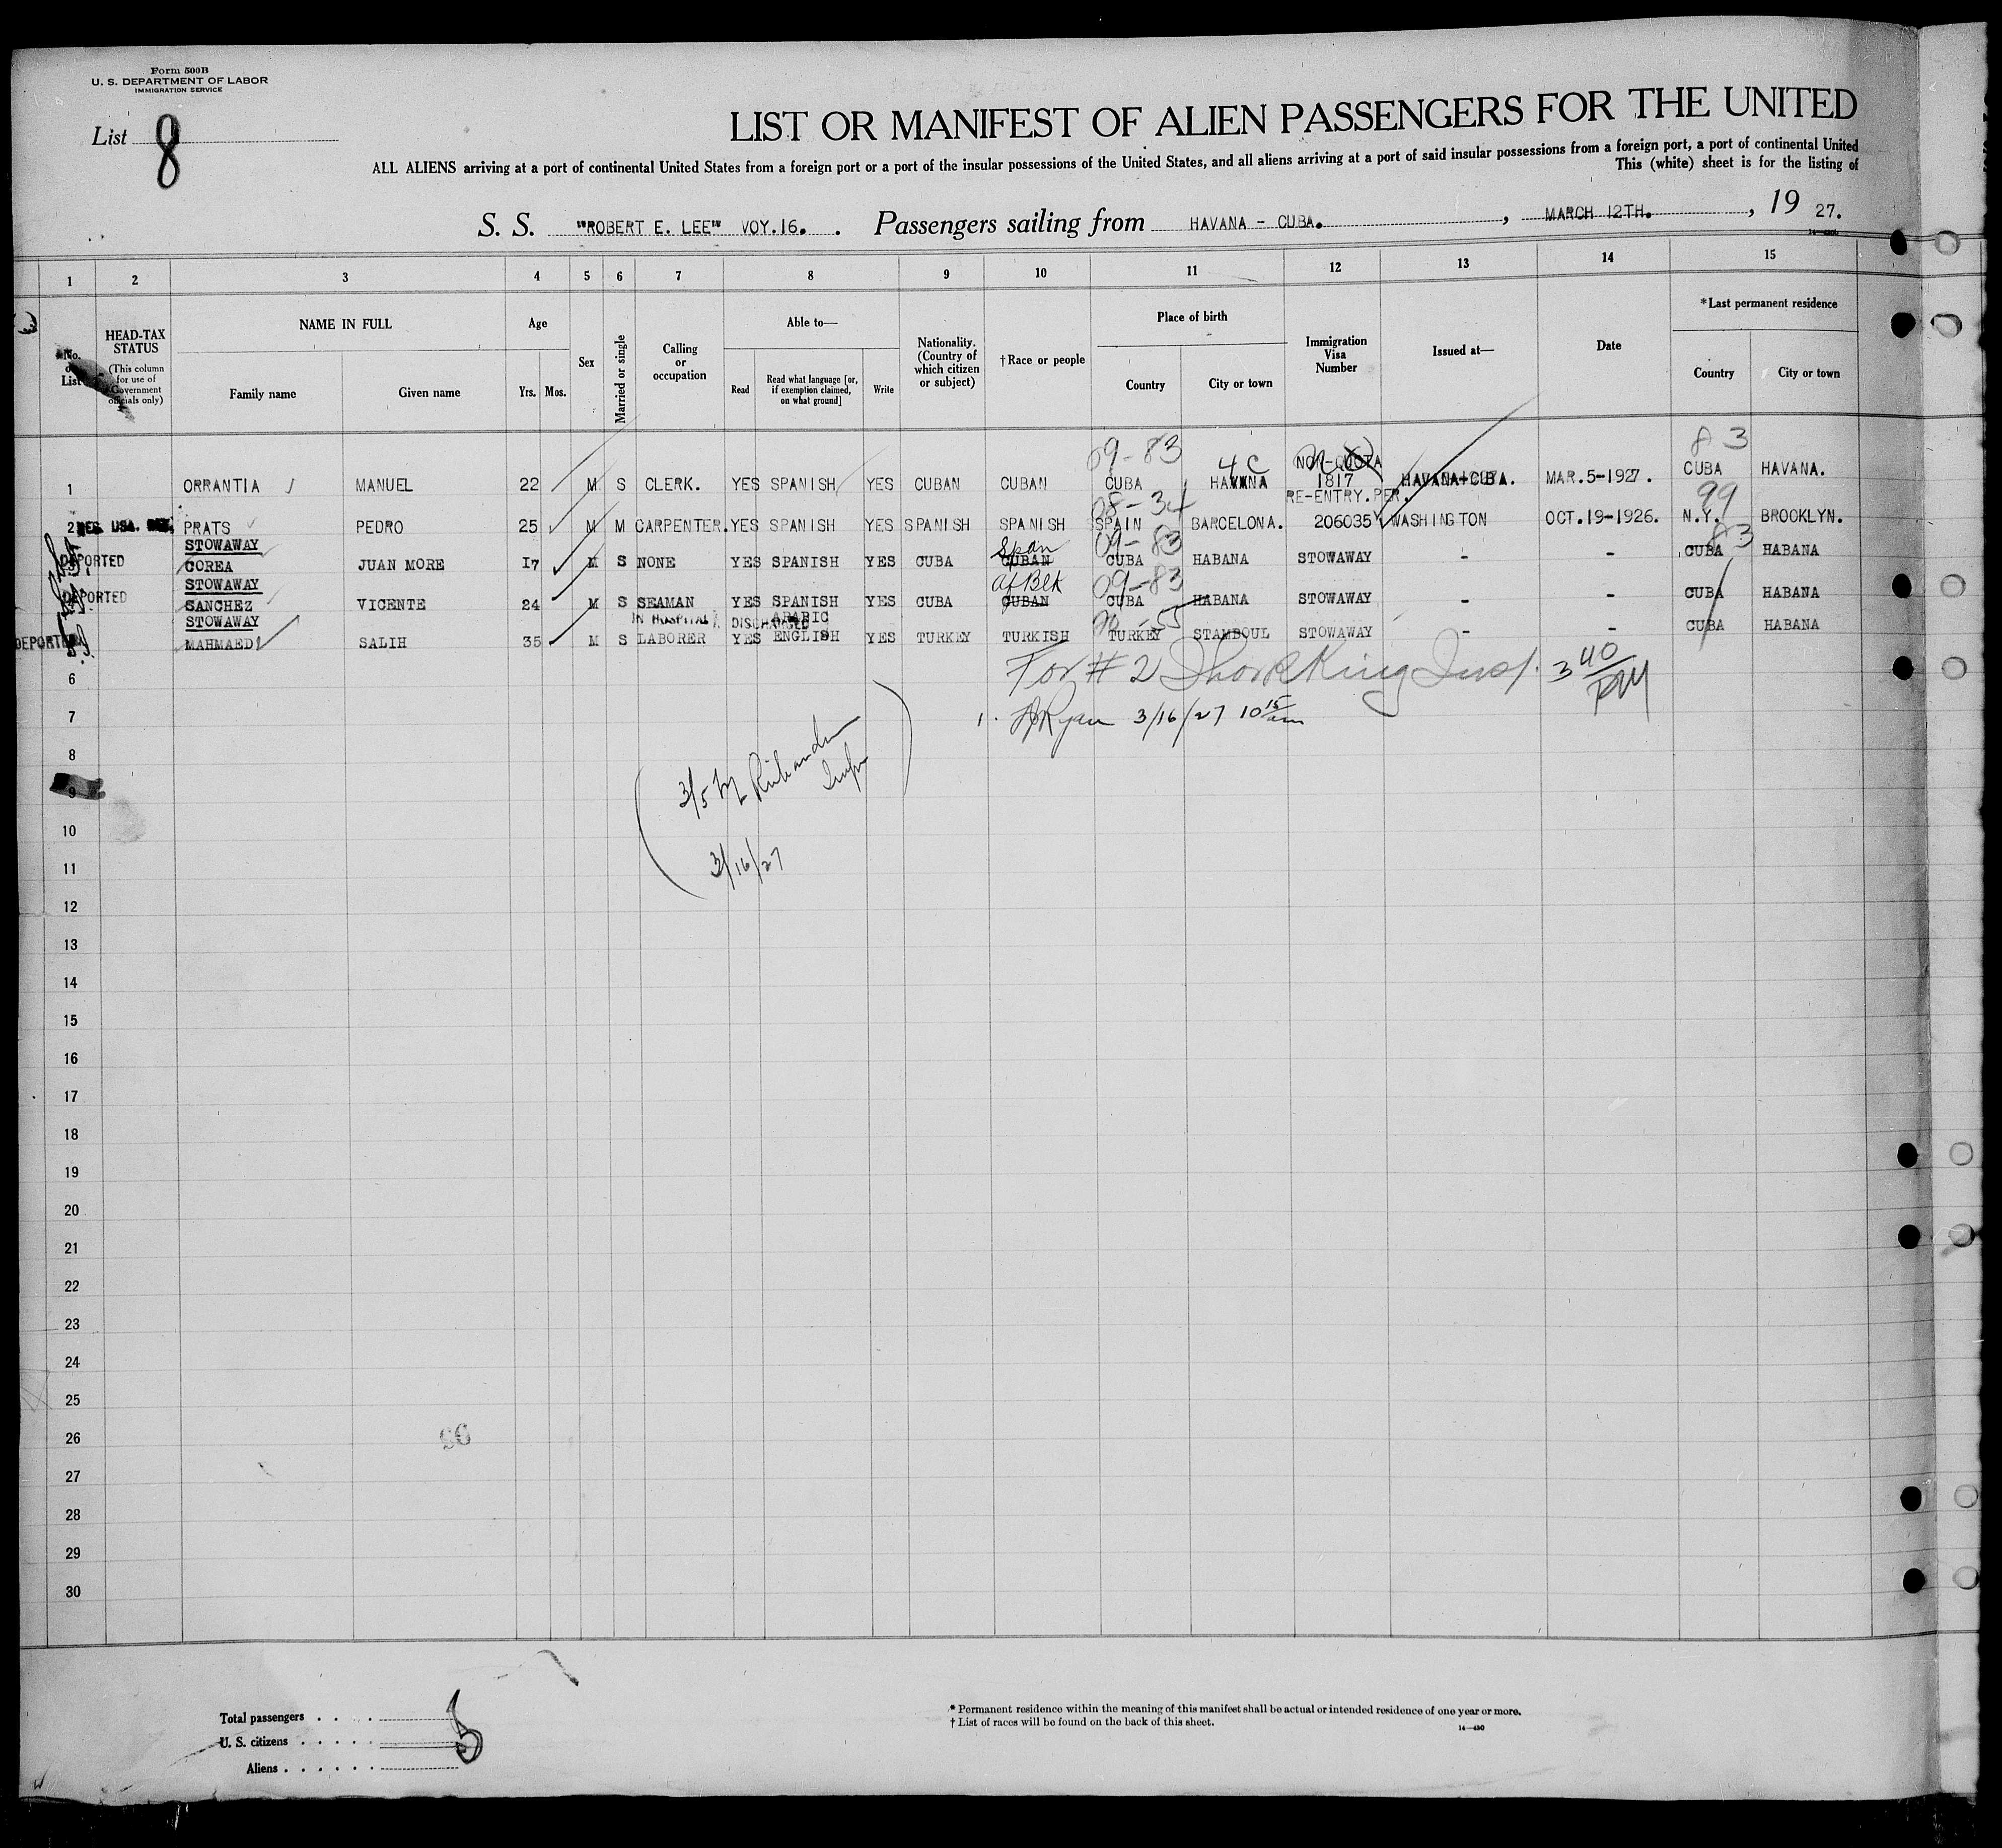 Form 500B
U. S. DEPARTMENT OF LABOR
IMMIGRATION SERVICE
List 8
LIST OR MANIFEST OF ALIEN PASSENGERS FOR THE UNITED
ALL ALIENS arriving at a port of continental United States from a foreign port or a port of the insular possessions of the United States, and all aliens arriving at a port of said insular possessions from a foreign port, a port of continental United
This (white) sheet is for the listing of
S. S. "ROBERT E. LEE" VOY.16. Passengers sailing from HAVANA - CUBA. , MARCH 12TH. , 19 27.
1 2 3 4 5 6 7 8 9 10 11 12 13 14 15
No. on List
HEAD-TAX STATUS
(This column for use of Government officials only)
NAME IN FULL
Family name Given name
Age
Yrs. Mos.
Sex
Married or single
Calling or occupation
Able to—
Read
Read what language [or, if exemption claimed, on what ground]
Write
Nationality. (Country of which citizen or subject)
†Race or people
Place of birth
Country City or town
Immigration Visa Number
Issued at—
Date
*Last permanent residence
Country City or town
09-83 4C 83
NON-QUOTA
1 ORRANTIA MANUEL 22 M S CLERK. YES SPANISH YES CUBAN CUBAN CUBA HAVANA 1817 HAVANA-CUBA. MAR.5-1927. CUBA HAVANA.
08-34 RE-ENTRY.PER. 99
2 USA. PRATS PEDRO 25 M M CARPENTER. YES SPANISH YES SPANISH SPANISH SPAIN BARCELONA. 206035 WASHINGTON OCT.19-1926. N.Y. BROOKLYN.
STOWAWAY Span 09-83 83
DEPORTED COREA JUAN MORE 17 M S NONE YES SPANISH YES CUBA CUBAN CUBA HABANA STOWAWAY - - CUBA HABANA
STOWAWAY Af Blk 09-83
DEPORTED SANCHEZ VICENTE 24 M S SEAMAN YES SPANISH YES CUBA CUBAN CUBA HABANA STOWAWAY - - CUBA HABANA
STOWAWAY IN HOSPITAL DISCHARGED ARABIC
DEPORTED MAHMAEDI SALIH 35 M S LABORER YES ENGLISH YES TURKEY TURKISH TURKEY STAMBOUL STOWAWAY - - CUBA HABANA
6 For #2 King Insp. 3 40 PM
7 1. Ryan 3/16/27 10 15 am
8
3/5
9
10
11
3/16/27
12
13
14
15
16
17
18
19
20
21
22
23
24
25
26
27
28
29
30
Total passengers . . . .
U. S. citizens . . . . .
Aliens . . . . . .
5
* Permanent residence within the meaning of this manifest shall be actual or intended residence of one year or more.
† List of races will be found on the back of this sheet.
14—430